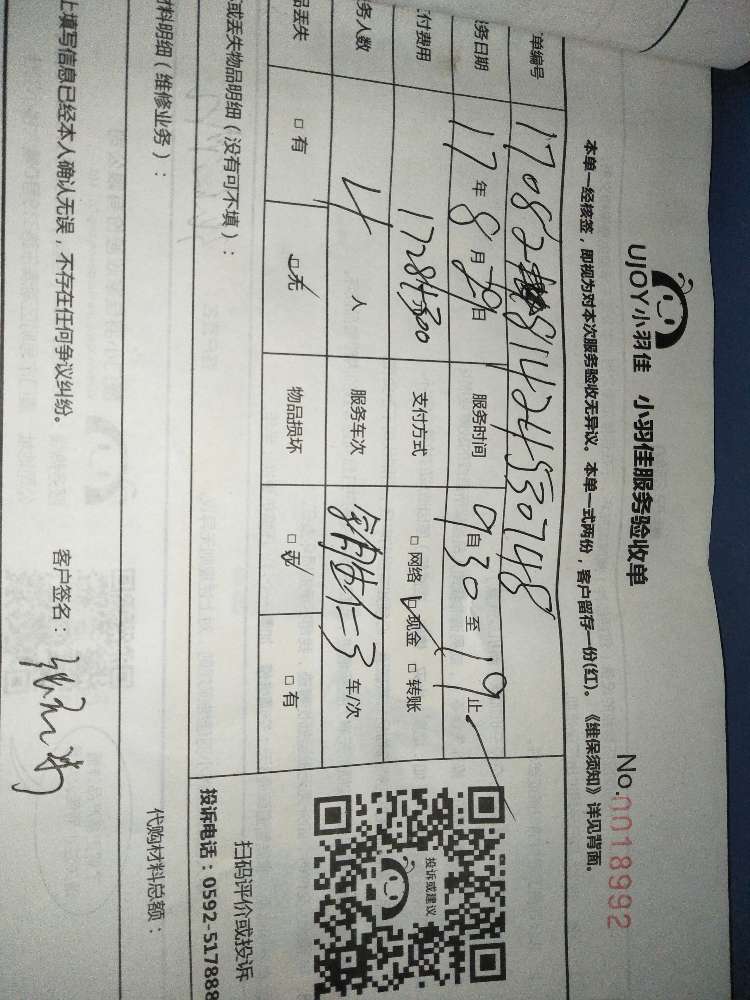 UJOY小羽佳 小羽佳服务验收单 No.0018992
本单一经核签，即视为对本次服务验收无异议。本单一式两份，客户留存一份(红)。《维保须知》详见背面。
单编号
务日期 17年8月29日 服务时间 9自30至19止
付费用 支付方式 □网络 □现金 □转账
务人数 4人 服务车次 车/次
品丢失 □有 □无 物品损坏 □无 □有
投诉或建议
扫码评价或投诉
投诉电话：0592-517888
或丢失物品明细（没有可不填）：
料明细（维修业务）： 代购材料总额：
上填写信息已经本人确认无误，不存在任何争议纠纷。 客户签名：